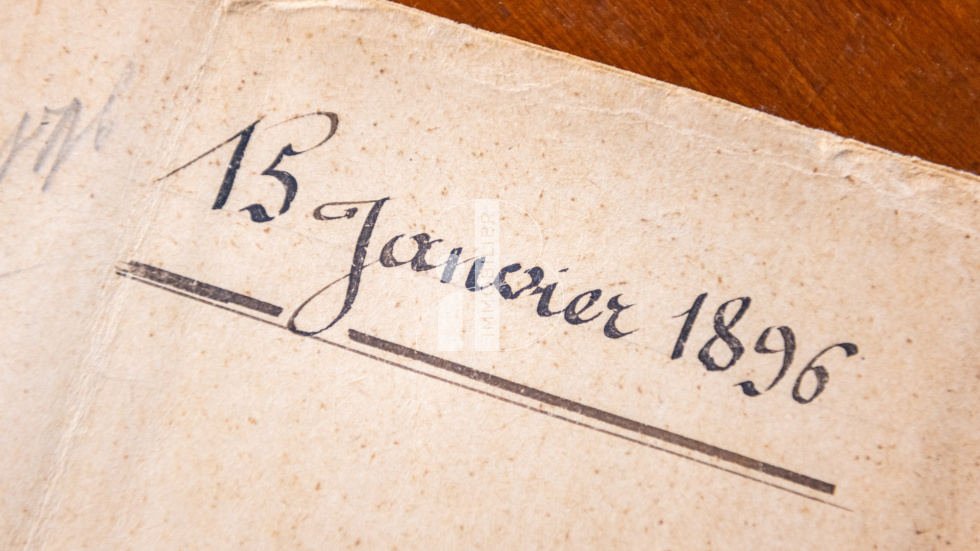 15 Janvier 1896